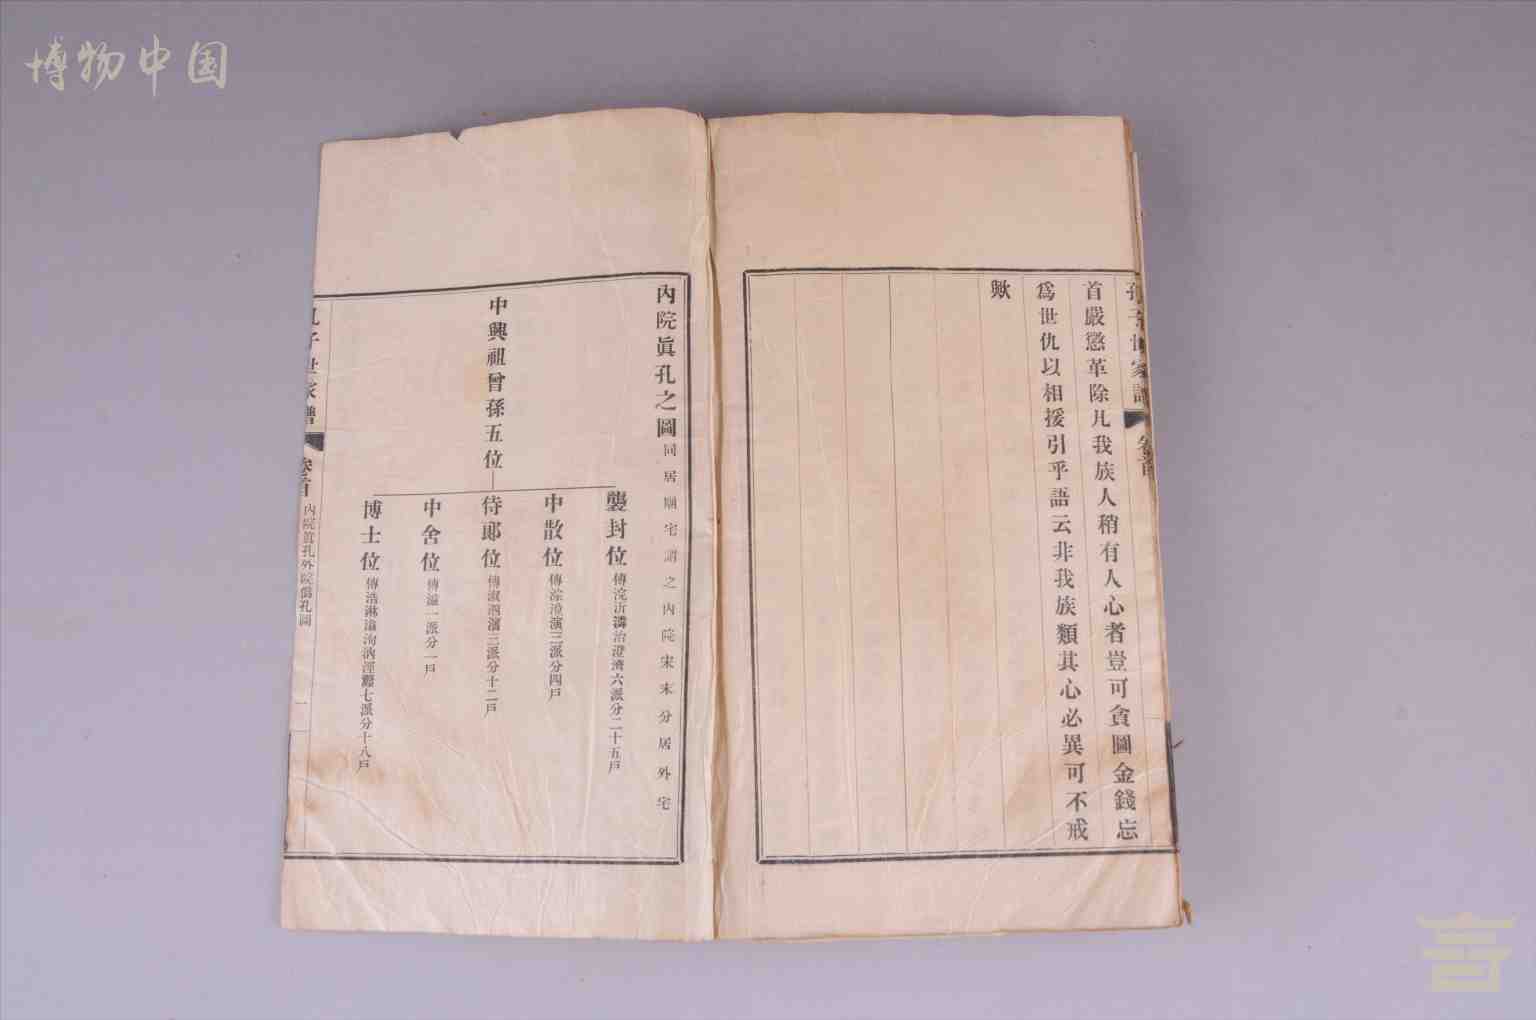 博物中国
孔子世家譜 卷首
首嚴懲革除凡我族人稍有人心者豈可貪圖金錢忘
爲世仇以相援引乎語云非我族類其心必異可不戒
歟
內院眞孔之圖 同居廟宅謂之內院宋末分居外宅
中興祖曾孫五位
襲封位 傳浣沂潾治澄濟六派分二十五戶
中散位 傳淙演三派分四戶
侍郎位 傳淑泗濱三派分十二戶
中舍位 傳滋一派分一戶
博士位 傳浩淋洵汭涇七派分十八戶
孔子世家譜 卷首 內院眞孔外院僞孔圖 一